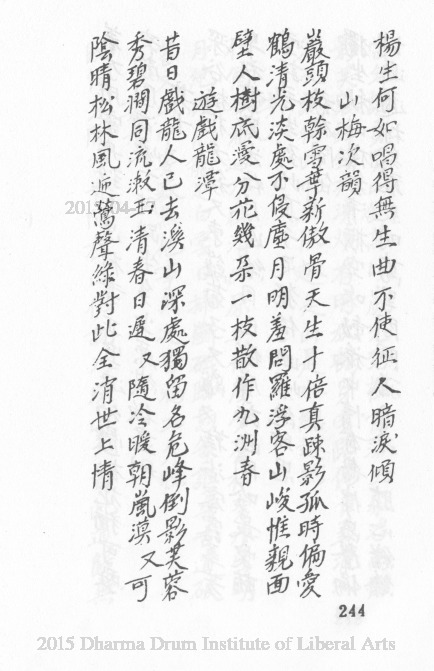 楊生何如唱得無生曲不使征人暗淚傾
山梅次韻
巖頭枝榦雪華新傲骨天生十倍真疎影孤時偏愛
鶴清光淡處不侵塵月明羞問羅浮客山峻惟親面
壁人樹底漫分花幾朵一枝散作九洲春
遊戲龍潭
昔日戲龍人已去溪山深處獨留名危峰倒影芙蓉
秀碧澗同流漱玉清春日遲々隨冷暖朝嵐漠々可
陰晴松林風遞鶯聲綠對此全消世上情
244
2015 Dharma Drum Institute of Liberal Arts